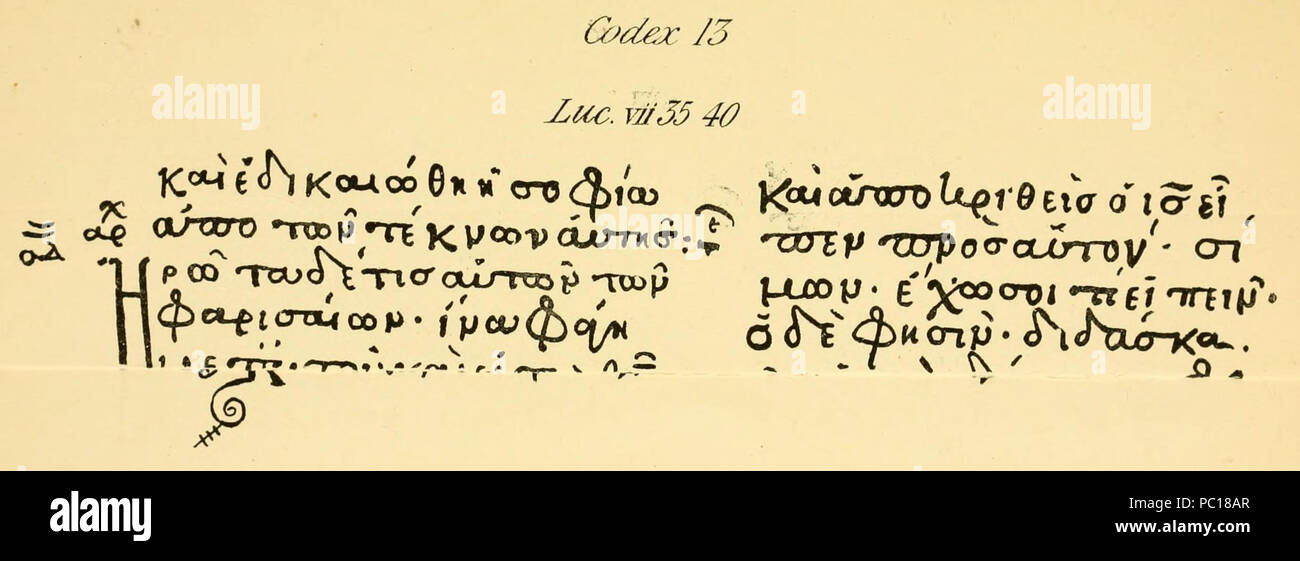 Codex 13
Luc. vii 35 40
καὶ ἐδικαιώθη ἡ σοφία
ἀπὸ τῶν τέκνων αὐτῆς·
Ηρώτα δέ τισ αὐτὸν τῶν
φαρισαίων· ἵνα φάγη
καὶ ἀποκριθεὶσ ὁ ισ εἶ
πεν πρὸσ αὐτόν· σί
μων· ἔχω σοι τί εἰπεῖν·
ὁ δὲ φησὶν· διδάσκα
alamy
a
a
alamy
alamy
a
a
alamy
alamy
Image ID: PC18AR
www.alamy.com